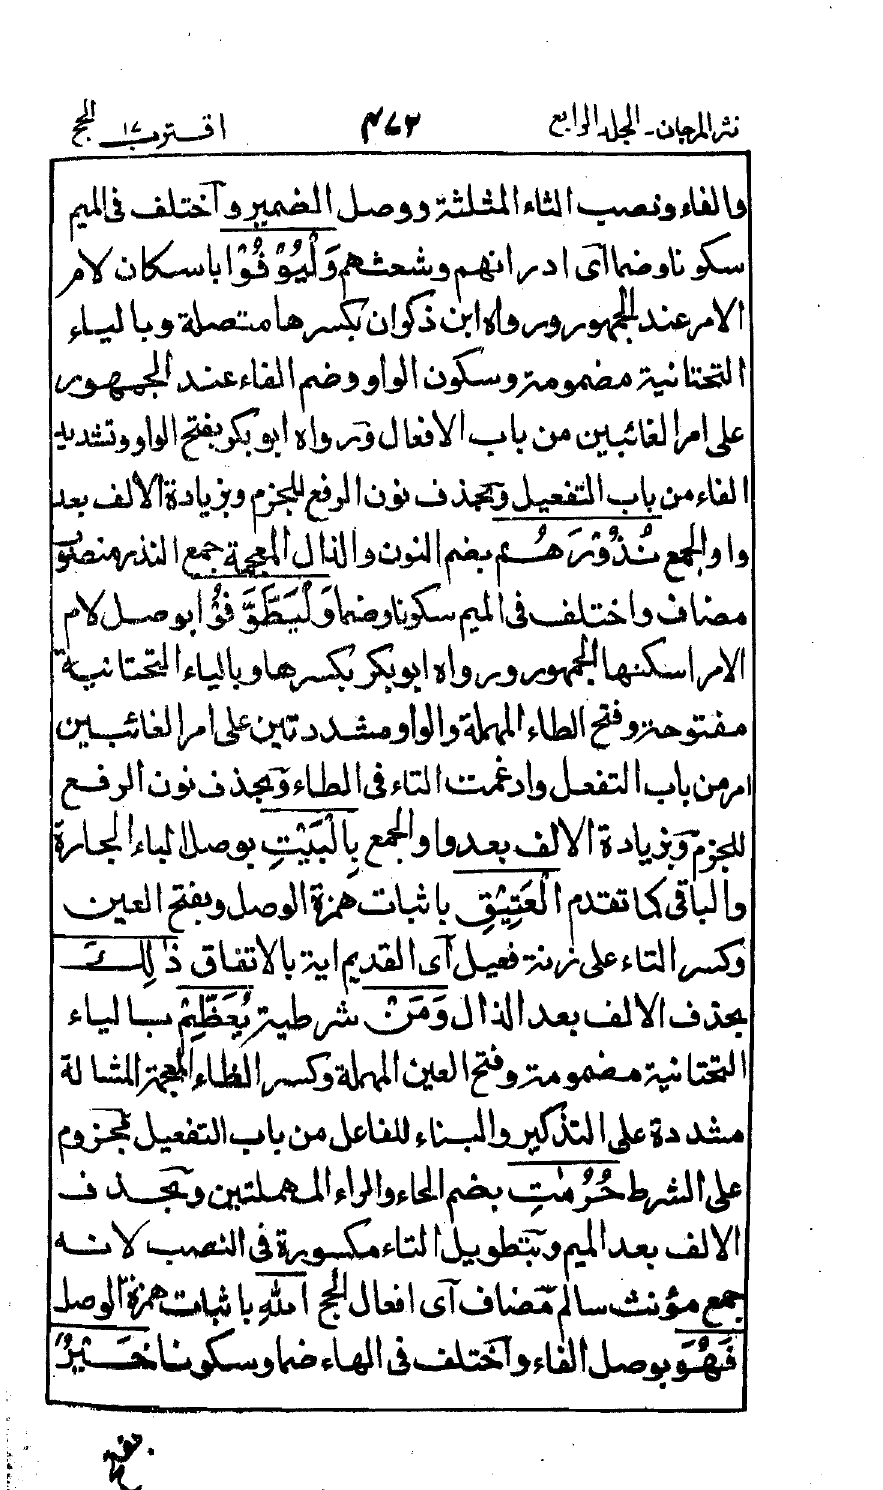 نثر المرجان ـ المجلد الرابع ٤٧٢ اقترب ١٧ الحج
والفاء ونصب الثاء المثلثة ووصل الضمير واختلف فى الميم
سكونا وضما اى ادرانهم وشعثهم وَلْيُوْفُوْا باسكان لام
الامر عند الجمهور ورواه ابن ذكوان بكسرها متصلة وبالياء
التحتانية مضمومة وسكون الواو وضم الفاء عند الجمهور
على امر الغائبين من باب الافعال ورواه ابو بكر بفتح الواو وتشديد
الفاء من باب التفعيل وبحذف نون الرفع للجزم وبزيادة الالف بعد
واو الجمع نُذُوْرَهُمْ بضم النون والذال المعجمة جمع النذر منصوب
مضاف واختلف فى الميم سكونا وضما وَلْيَطَّوَّفُوْا بوصل لام
الامر اسكنها الجمهور ورواه ابو بكر بكسرها وبالياء التحتانية
مفتوحة وفتح الطاء المهملة والواو مشددتين على امر الغائبين
امر من باب التفعل وادغمت التاء فى الطاء وبحذف نون الرفع
للجزم وبزيادة الالف بعد واو الجمع بِالْبَيْتِ بوصل الباء الجارة
والباقى كما تقدم الْعَتِيْقِ باثبات همزة الوصل وبفتح العين
وكسر التاء على زنة فعيل اى القديم اية بالاتفاق ذَالِكَ
بحذف الالف بعد الذال وَمَنْ شرطية يُعَظِّمْ بالياء
التحتانية مضمومة وفتح العين المهملة وكسر الظاء المعجمة المشالة
مشددة على التذكير والبناء للفاعل من باب التفعيل مجزوم
على الشرط حُرُمٰتِ بضم الحاء والراء المهملتين وبحذف
الالف بعد الميم وبتطويل التاء مكسورة فى النصب لانه
جمع مؤنث سالم مضاف اى افعال الحج اللهِ باثبات همزة الوصل
فَهُوَ بوصل الفاء واختلف فى الهاء ضما وسكونا خَيْرٌ